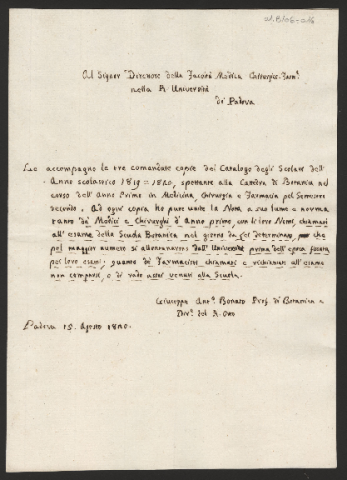 Al Signor Direttore della Facoltà Medica Chirurgic. Farm.
nella R. Università
di Padova
Le accompagno le tre comandate copie dei Catalogo degli Scolari dell'
Anno scolastico 1819=1820, spettante alla Cattedra di Botanica nel
corso dell'Anno Primo in Medicina, Chirurgia e Farmacia pel Semestre
secondo. Ad ogni copia ho pure unite la Nota, a suo lume e norma
tanto de' Medici e Chirurghi d'anno primo, con li loro Nomi, chiamati
all'esame della Scuola Botanica nel giorno da che
pel maggior numero si allontanarono dall'Università prima dell'epoca fissata
per loro esami; quanto de' Farmacisti chiamati e richiamati all'esame
non comparsi, o di rado venuti alla Scuola.
Giuseppe Ant.º Bonato Prof. di Botanica e
Dir.e del R. Orto
Padova 15. Agosto 1820.